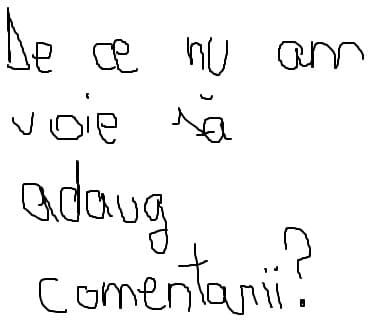 De ce nu am
voie să
adaug
comentarii?